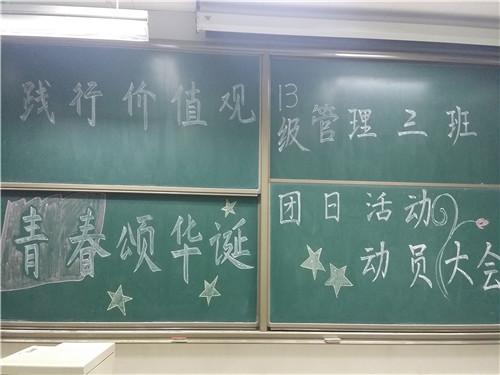 践行价值观
青春颂华诞
13
级管理三班
团日活动
动员大会